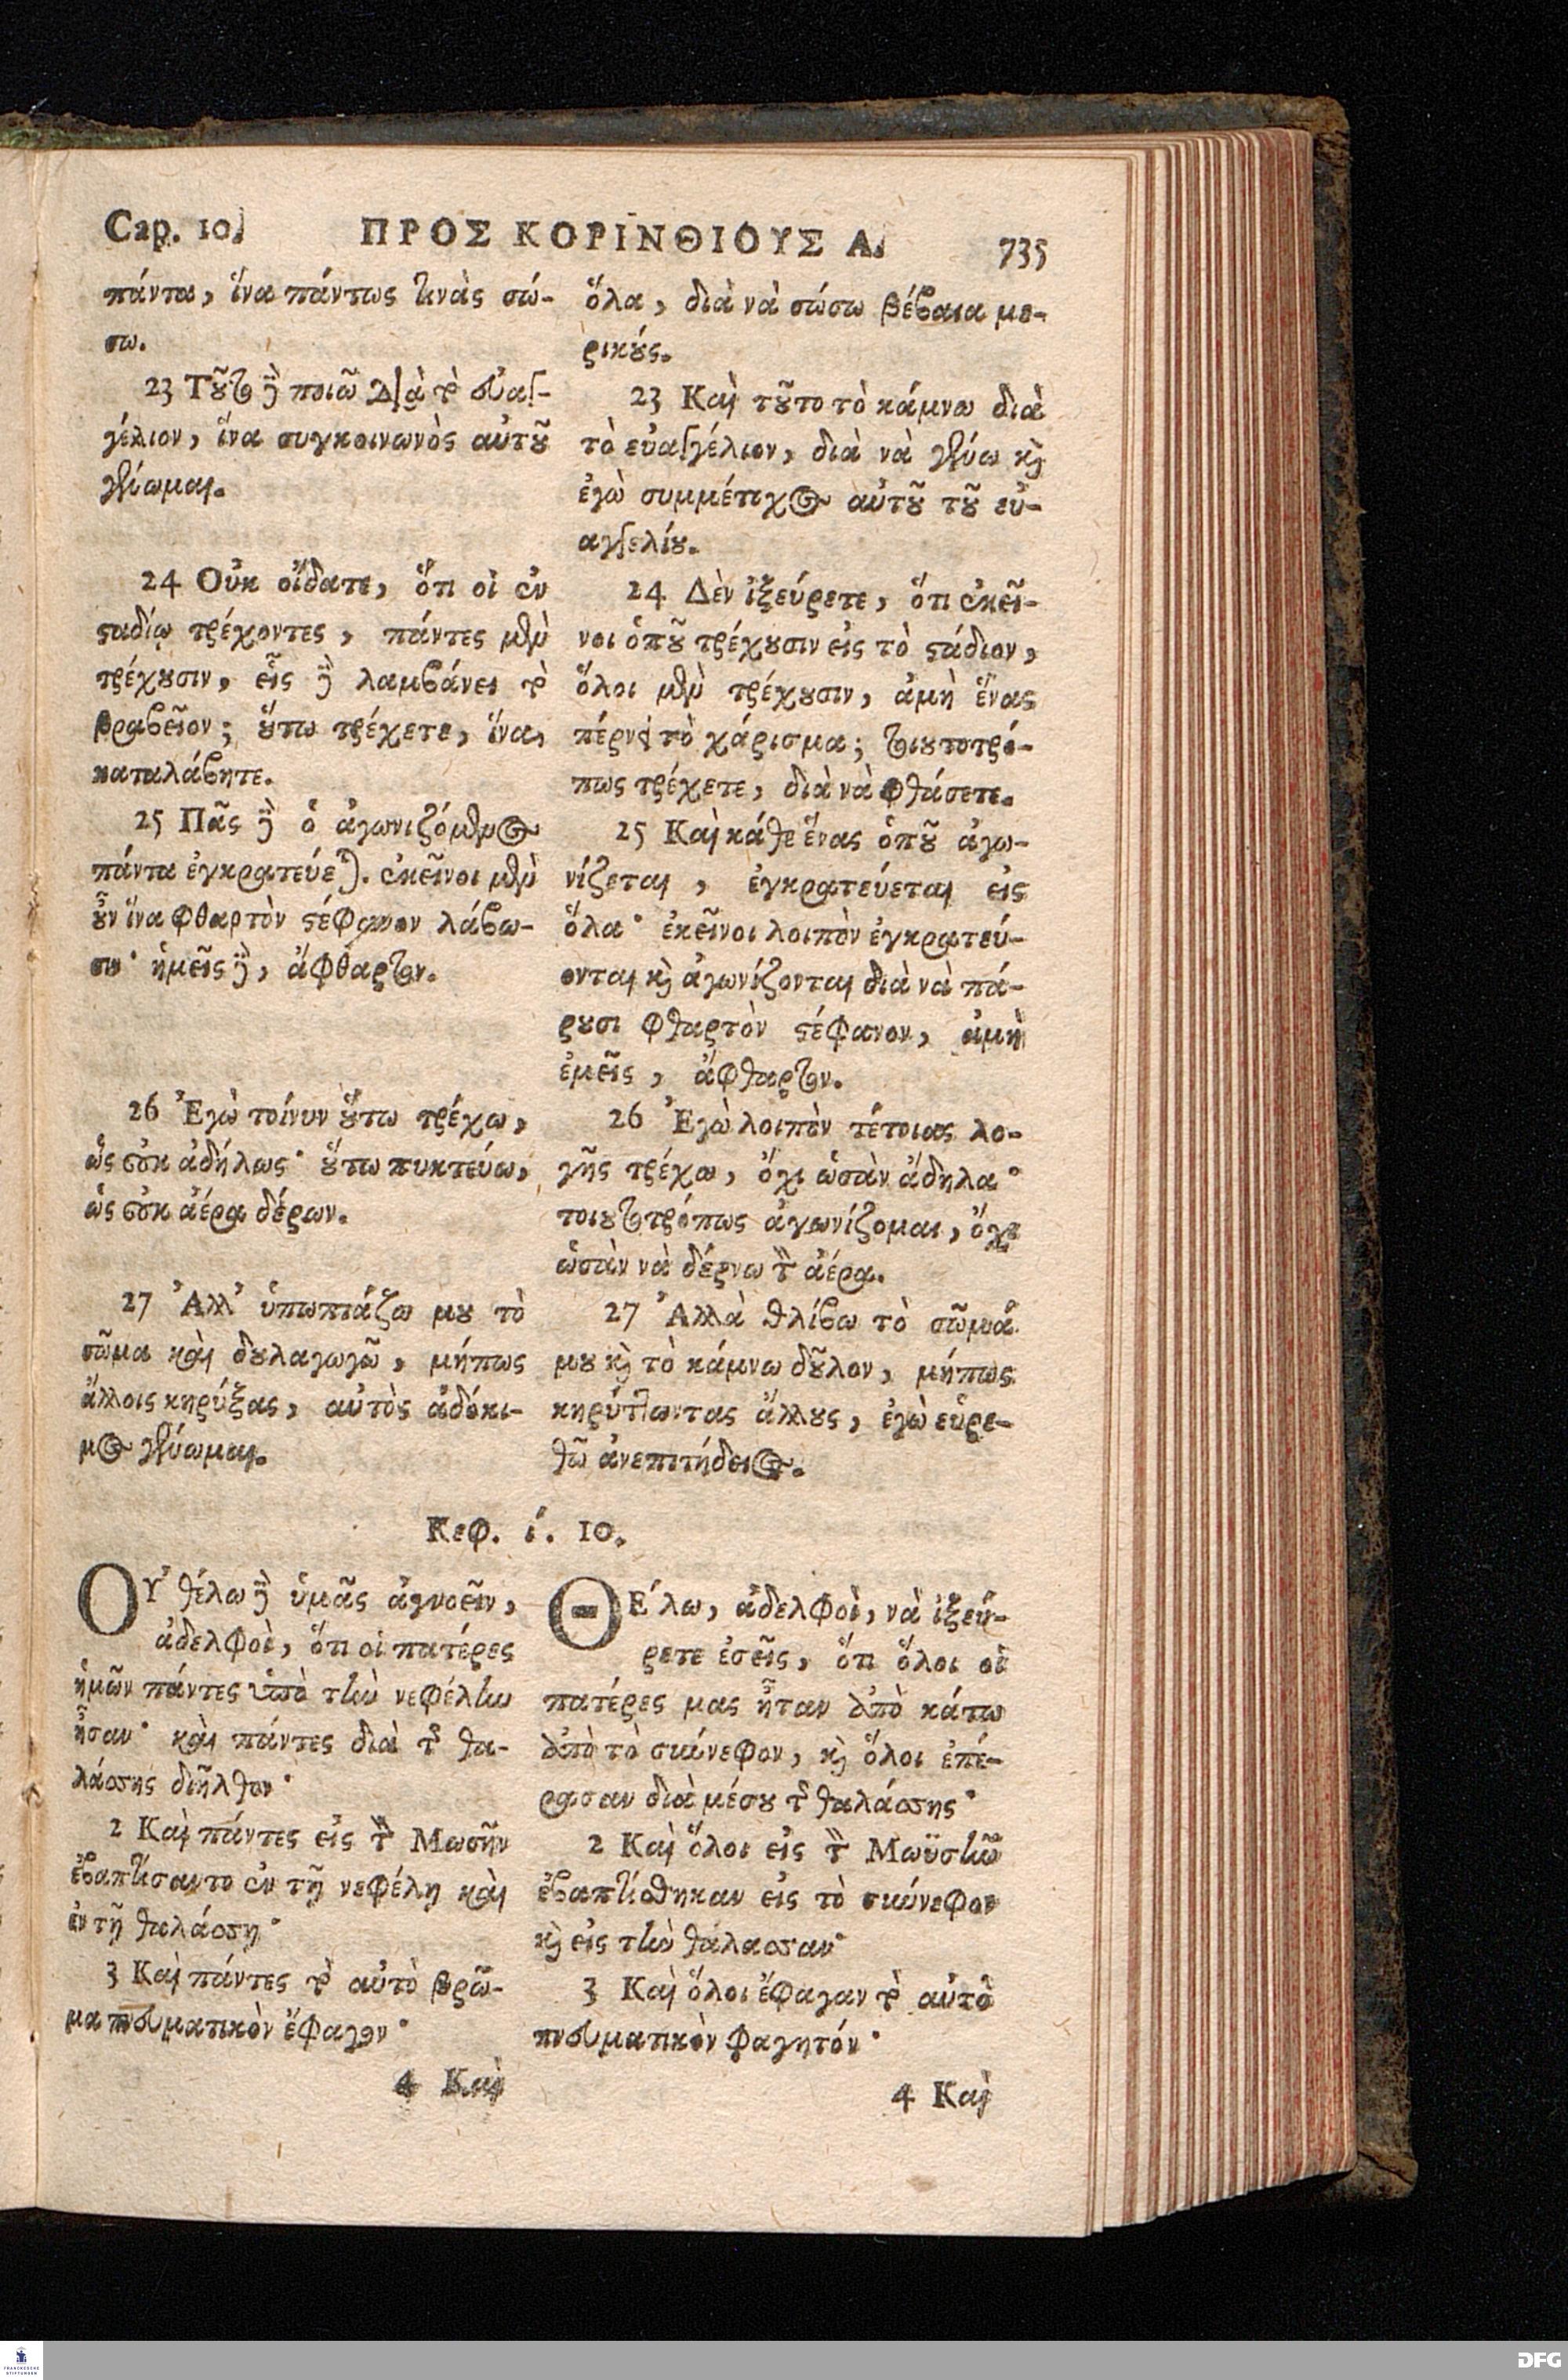 Cap. 10. ΠΡΟΣ ΚΟΡΙΝΘΙΟΥΣ Α. 735
πάντα, ἵνα πάντως τινὰς σώ-
σω.
23 Τοῦτο δὲ ποιῶ διὰ τὸ εὐαγ-
γέλιον, ἵνα συγκοινωνὸς αὐτοῦ
γένωμαι.
24 Οὐκ οἴδατε, ὅτι οἱ ἐν
σταδίῳ τρέχοντες, πάντες μὲν
τρέχουσιν, εἷς δὲ λαμβάνει τὸ
βραβεῖον; οὕτω τρέχετε, ἵνα
καταλάβητε.
25 Πᾶς δὲ ὁ ἀγωνιζόμενος
πάντα ἐγκρατεύεται. ἐκεῖνοι μὲν
οὖν ἵνα φθαρτὸν στέφανον λάβω-
σιν· ἡμεῖς δὲ, ἄφθαρτον.
26 Ἐγὼ τοίνυν οὕτω τρέχω,
ὡς οὐκ ἀδήλως· οὕτω πυκτεύω,
ὡς οὐκ ἀέρα δέρων.
27 Ἀλλ' ὑπωπιάζω μου τὸ
σῶμα καὶ δουλαγωγῶ, μήπως
ἄλλοις κηρύξας, αὐτὸς ἀδόκι-
μος γένωμαι.
ὅλα, διὰ νὰ σώσω βέβαια με-
ρικούς.
23 Καὶ τοῦτο τὸ κάμνω διὰ
τὸ εὐαγγέλιον, διὰ νὰ γένω καὶ
ἐγὼ συμμέτοχος αὐτοῦ τοῦ εὐ-
αγγελίου.
24 Δὲν ἰξεύρετε, ὅτι ἐκεῖ-
νοι ὁποῦ τρέχουσιν εἰς τὸ στάδιον,
ὅλοι μὲν τρέχουσιν, ἀμὴ ἕνας
πέρνει τὸ χάρισμα; τοιουτοτρό-
πως τρέχετε, διὰ νὰ φθάσετε.
25 Καὶ κάθε ἕνας ὁποῦ ἀγω-
νίζεται, ἐγκρατεύεται εἰς
ὅλα· ἐκεῖνοι λοιπὸν ἐγκρατεύ-
ονται καὶ ἀγωνίζονται διὰ νὰ πά-
ρουσι φθαρτὸν στέφανον, ἀμὴ
ἐμεῖς, ἄφθαρτον.
26 Ἐγὼ λοιπὸν τέτοιας λο-
γῆς τρέχω, ὄχι ὡσὰν ἄδηλα·
τοιουτοτρόπως ἀγωνίζομαι, ὄχι
ὡσὰν νὰ δέρνω τὸν ἀέρα.
27 Ἀλλὰ θλίβω τὸ σῶμά
μου καὶ τὸ κάμνω δοῦλον, μήπως
κηρύττωντας ἄλλους, ἐγὼ εὑρε-
θῶ ἀνεπιτήδειος.
Κεφ. ί. 10.
ΟΥ' θέλω δὲ ὑμᾶς ἀγνοεῖν,
ἀδελφοὶ, ὅτι οἱ πατέρες
ἡμῶν πάντες ὑπὸ τὴν νεφέλην
ἦσαν· καὶ πάντες διὰ τῆς θα-
λάσσης διῆλθον·
2 Καὶ πάντες εἰς τὸν Μωσῆν
ἐβαπτίσαντο ἐν τῇ νεφέλῃ καὶ
ἐν τῇ θαλάσσῃ·
3 Καὶ πάντες τὸ αὐτὸ βρῶ-
μα πνευματικὸν ἔφαγον·
4 Καὶ
ΘΕ'λω, ἀδελφοὶ, νὰ ἰξεύ-
ρετε ἐσεῖς, ὅτι ὅλοι οἱ
πατέρες μας ἦταν ἀπὸ κάτω
ἀπὸ τὸ σύννεφον, καὶ ὅλοι ἐπέ-
ρασαν διὰ μέσου τῆς θαλάσσης·
2 Καὶ ὅλοι εἰς τὸν Μωϋσῆν
ἐβαπτίσθηκαν εἰς τὸ σύννεφον
καὶ εἰς τὴν θάλασσαν·
3 Καὶ ὅλοι ἔφαγαν τὸ αὐτὸ
πνευματικὸν φαγητόν·
4 Καὶ
FRANCKESCHE
STIFTUNGEN
DFG